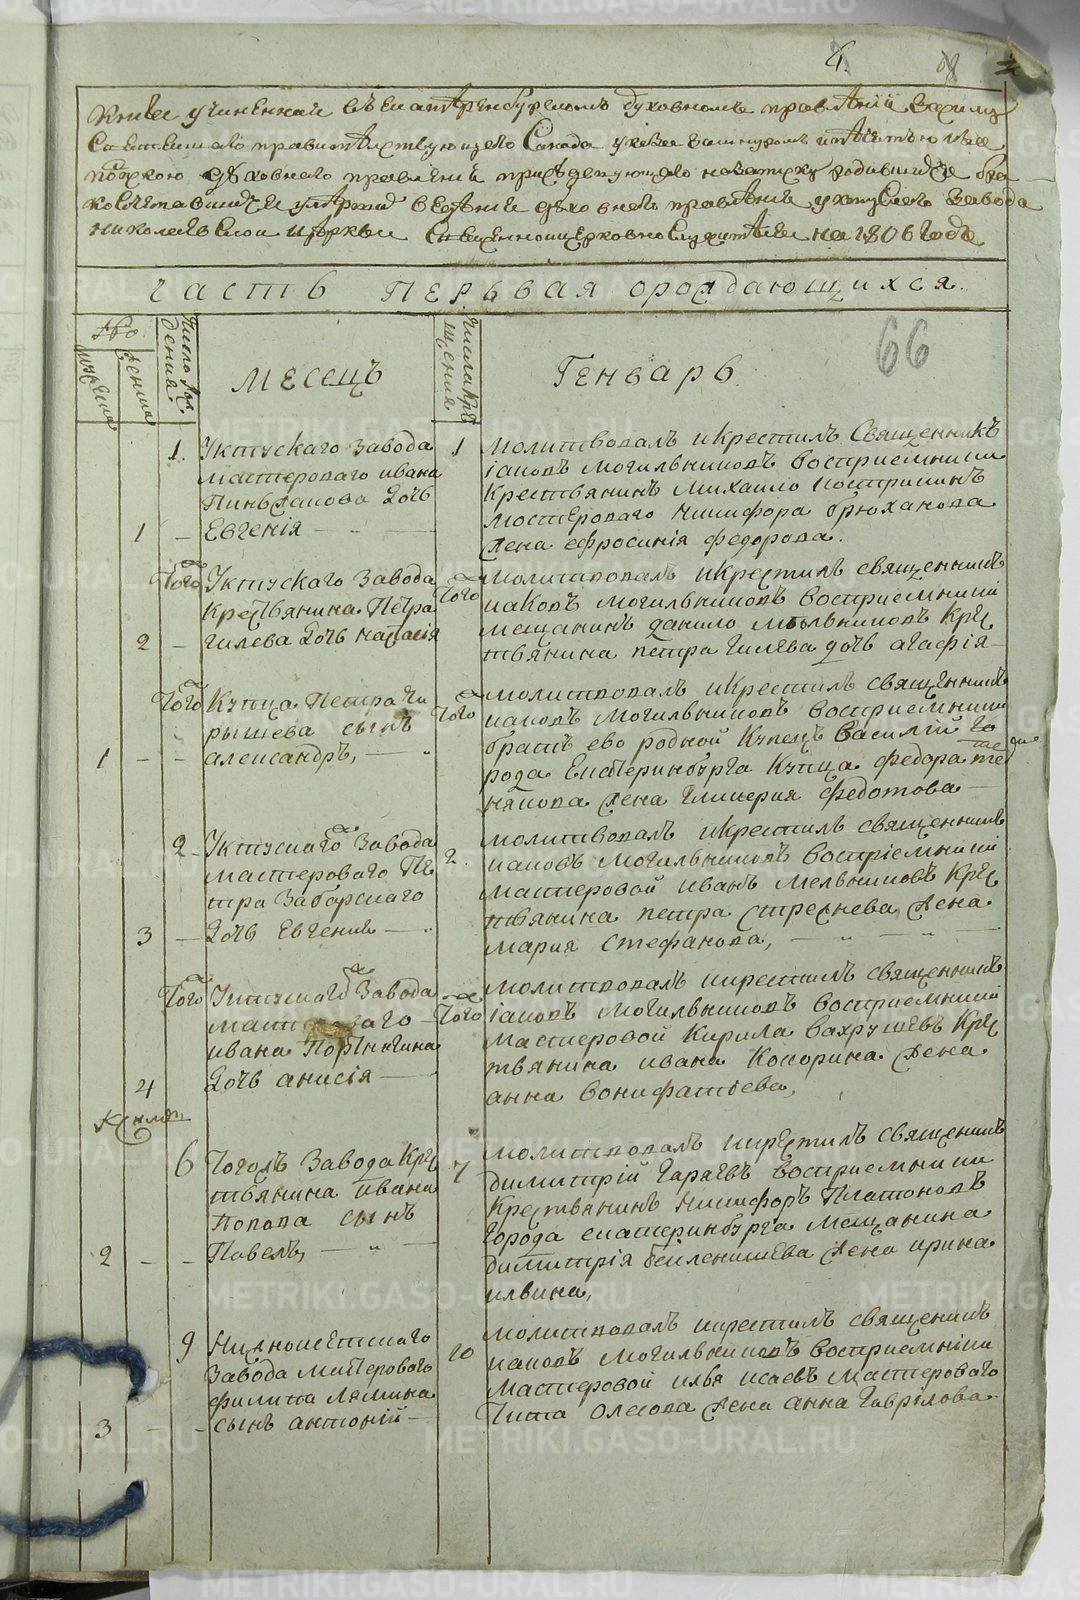 4.
Книга учиненная въ екатеринбургскомъ духовномъ правлѣнiи всилу
правительствующего Синода указа
духовнаго правленiя родившихся бра
ковъ духовнаго правленiя уктускаго Завода
николаевской церкви на 1806 Годъ
часть первая орождающихся.
66
мужеска
женска
Число рож
дения
Месецъ
Числа кре
щения
Генварь
1. Уктускаго Завода
мастероваго ивана
дочь
1 Евгенiя
1 молитвовалъ икрестилъ Священникъ
iаковъ могильниковъ восприемники
Крестьянинъ михаило
мастероваго никифора брюханова
жена ефросинiя федорова.
Того Уктускаго Завода
Крестьянина петра
2 гилева дочь
Того молитвовалъ икрестилъ священникъ
иаковъ могильниковъ восприемники
мещанинъ данило мельниковъ Крес
тьянина петра гилева дочь агафiя
Того Купца Петра
рышева сынъ
1 александръ,
Того молитвовалъ икрестилъ священникъ
иаковъ могильниковъ восприемники
братъ ево родной Купецъ Василiй го
рода Екатеринбурга Купца федора
жена гликерия федотова
2 Уктускаго Завода
мастероваго Пе
тра Заборскаго
3 дочь Евгения
2. молитвовалъ икрестилъ священникъ
иаковъ могильниковъ восприемники
мастеровой иванъ мельниковъ Крес
тьянина петра стрежнева жена
мария стефанова,
Того Уктускаго Завода
мастероваго
ивана
4 дочь анисiя
Того молитвовалъ икрестилъ священникъ
iаковъ могильниковъ восприемники
мастеровой Кирила вахрушевъ Крес
тьянина ивана Кокорина жена
анна вонифатьева,
6 Тогожъ Завода Крес
тьянина ивана
попова сынъ
2 Павелъ,
7 молитвовалъ икрестилъ священникъ
димитрiй гаряевъ восприемники
Крестьянинъ никифоръ Платоновъ
города екатеринбурга мещанина
димитрiя жена ирина
ильина,
9 Нижноисетскаго
Завода мастероваго
филипа лямина
3 сынъ антонiй
10 молитвовалъ икрестилъ священникъ
иаковъ могильниковъ восприемники
мастеровой илья исаевъ мастероваго
тита олесова жена анна гаврiлова
METRIKI.GASO-URAL.RU